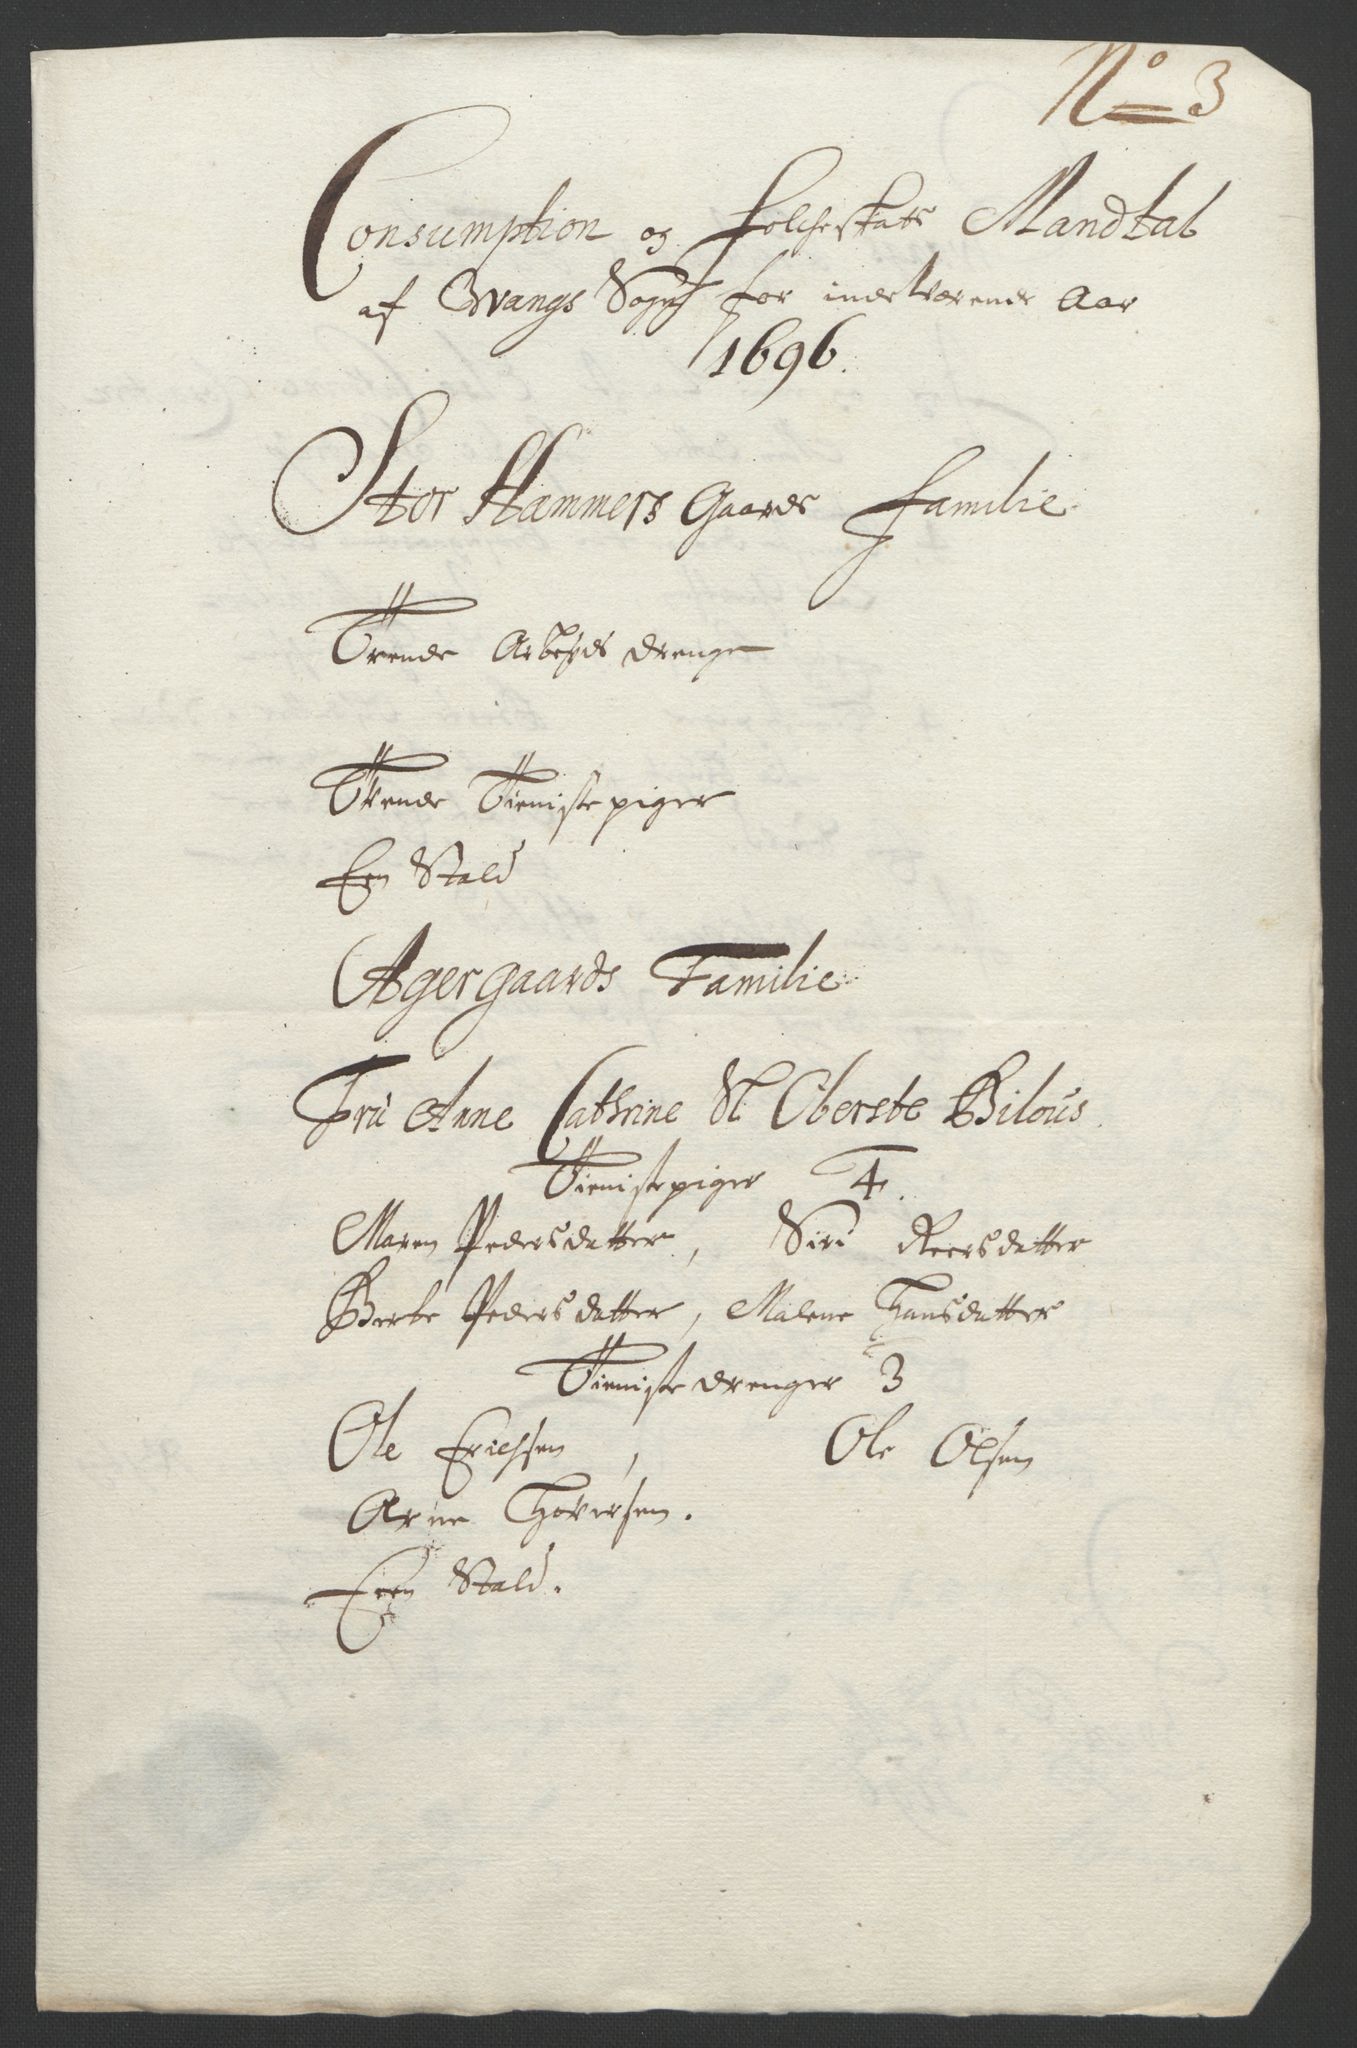 No 3
Consumption og folcheskats Mandtal
af Wangs Sogn for indeværende Aar
1696.
Stor Hammers Gaards familie
Trende Arbeyds drenge
Tvende Tieniste piger
Een Stald
Agergaards Familie
Frü Anne Cathrine Sl Oberste Bilous
Tieniste piger 4.
Maren Pedersdatter, Siri Reersdatter
Berte Pedersdatter, Malene Hansdatter
Tieniste drenger 3
Ole Erichsen, Ole Olsen
Arne Thoversen.
Een Stald.